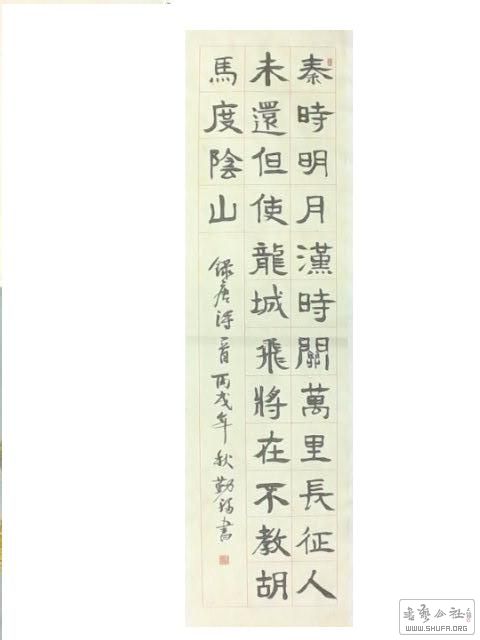 秦時明月漢時關萬里長征人
未還但使龍城飛將在不教胡
馬度陰山
錄唐詩一首 丙戌年秋 勤 書
書藝公社
WWW.SHUFA.ORG